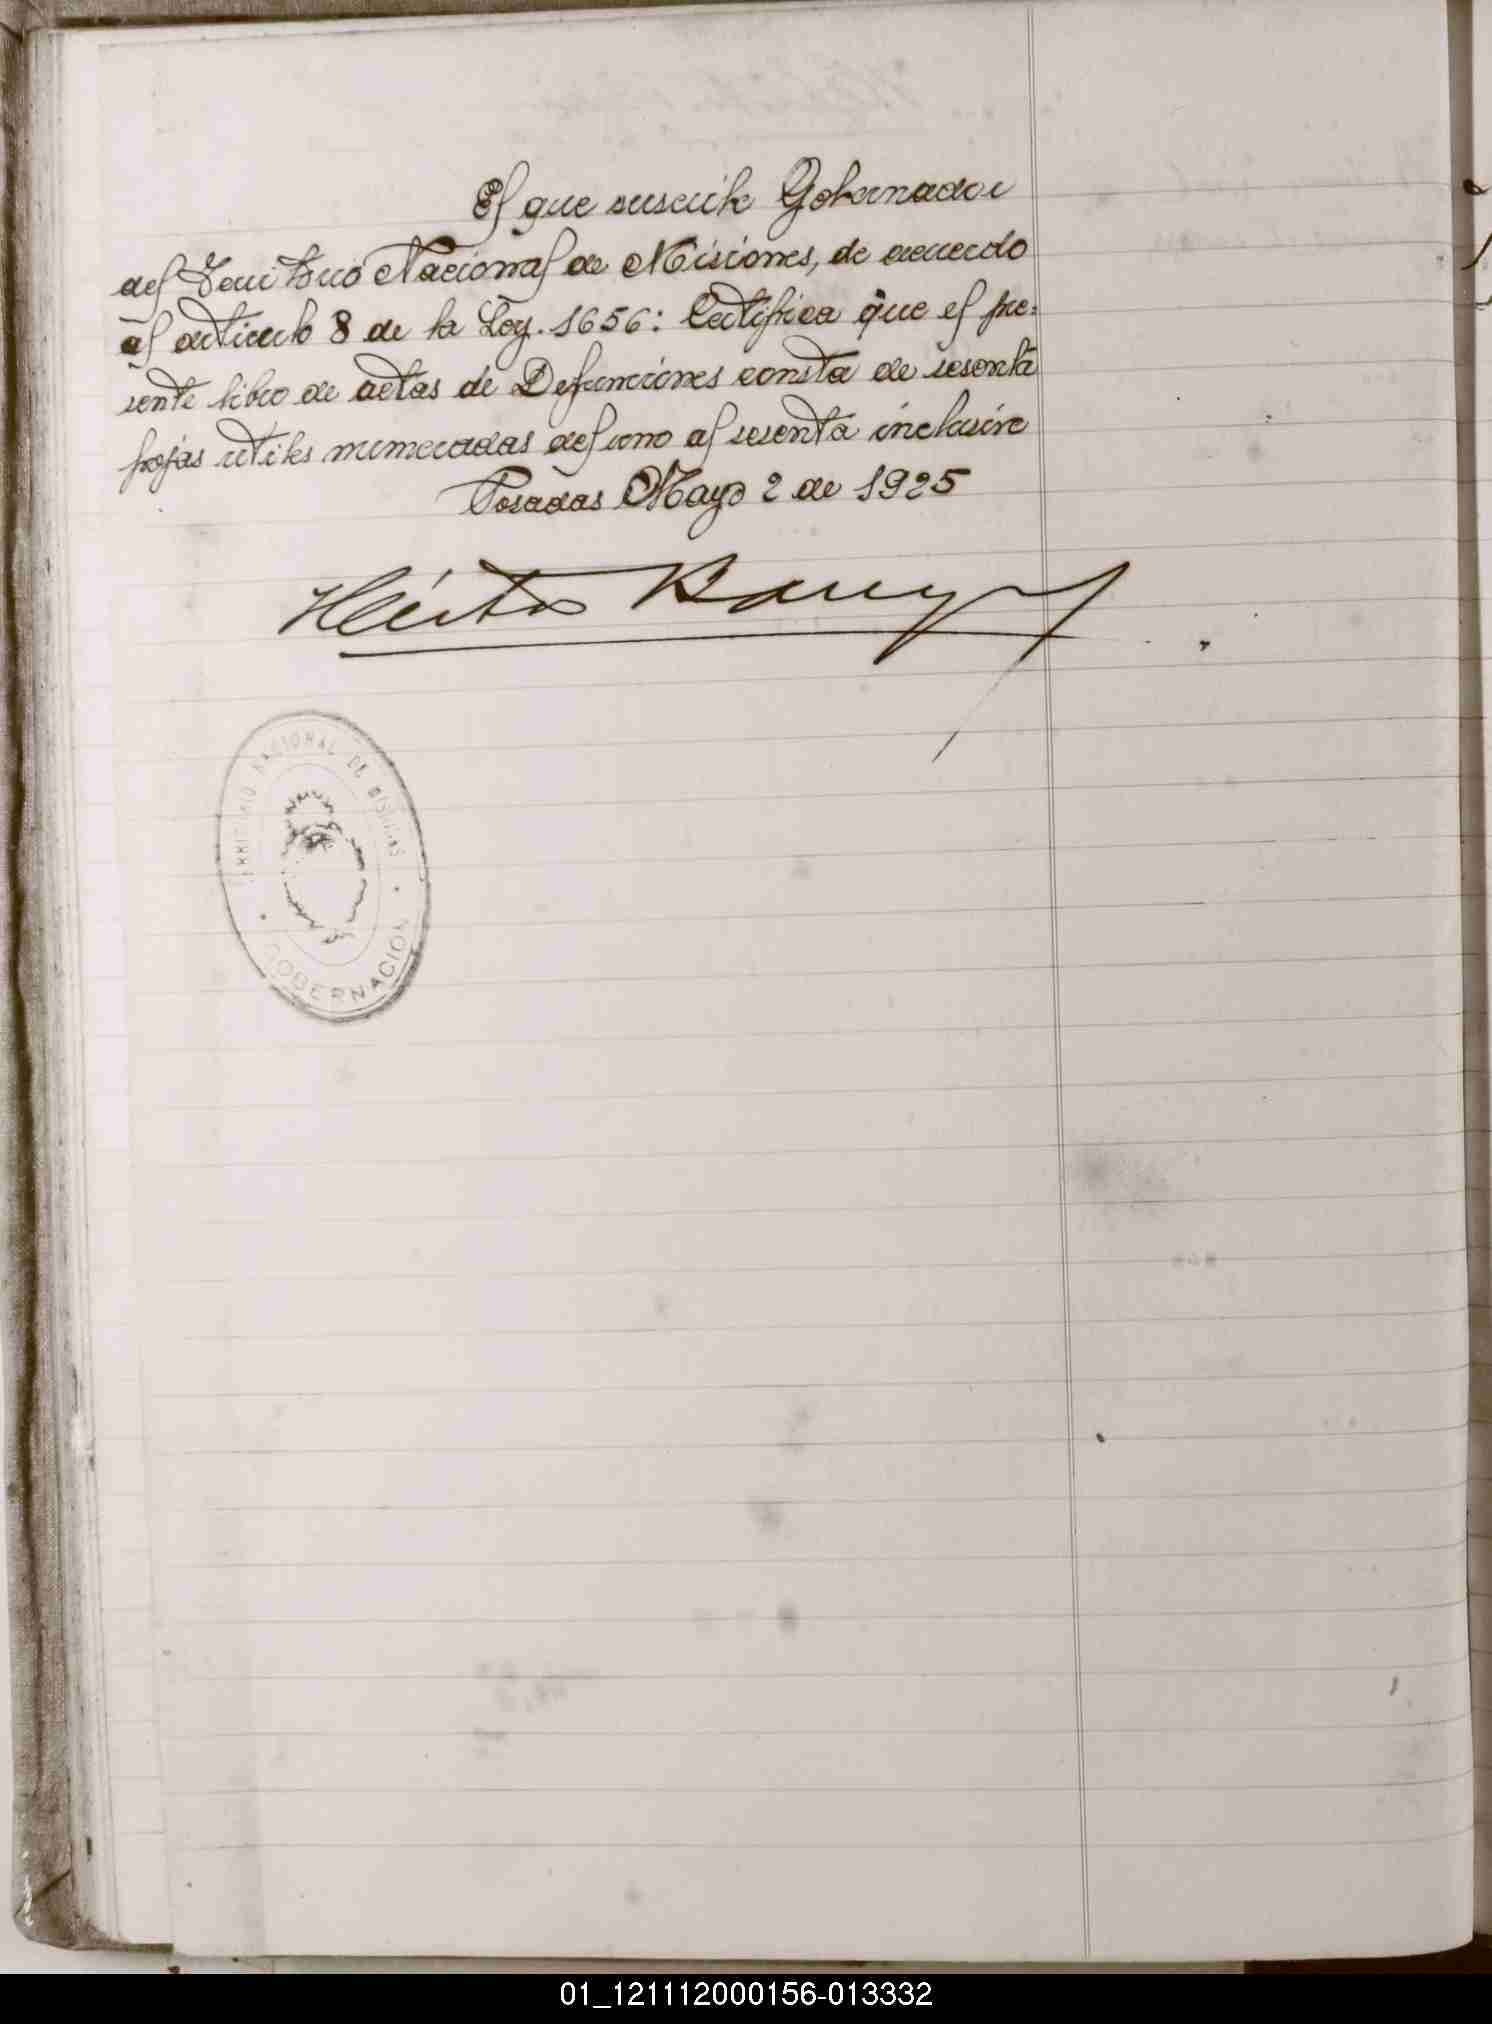 El que suscribe Gobernador
del Territorio Nacional de Misiones, de acuerdo
al articulo 8 de la Ley. 1656: Certifica que el pre:
sente libro de actas de Defunciones consta de sesenta
hojas utiles numeradas del uno al sesenta inclusive
Posadas Mayo 2 de 1925
Héctor Barreyro
TERRITORIO NACIONAL DE MISIONES
GOBERNACION
01_121112000156-013332